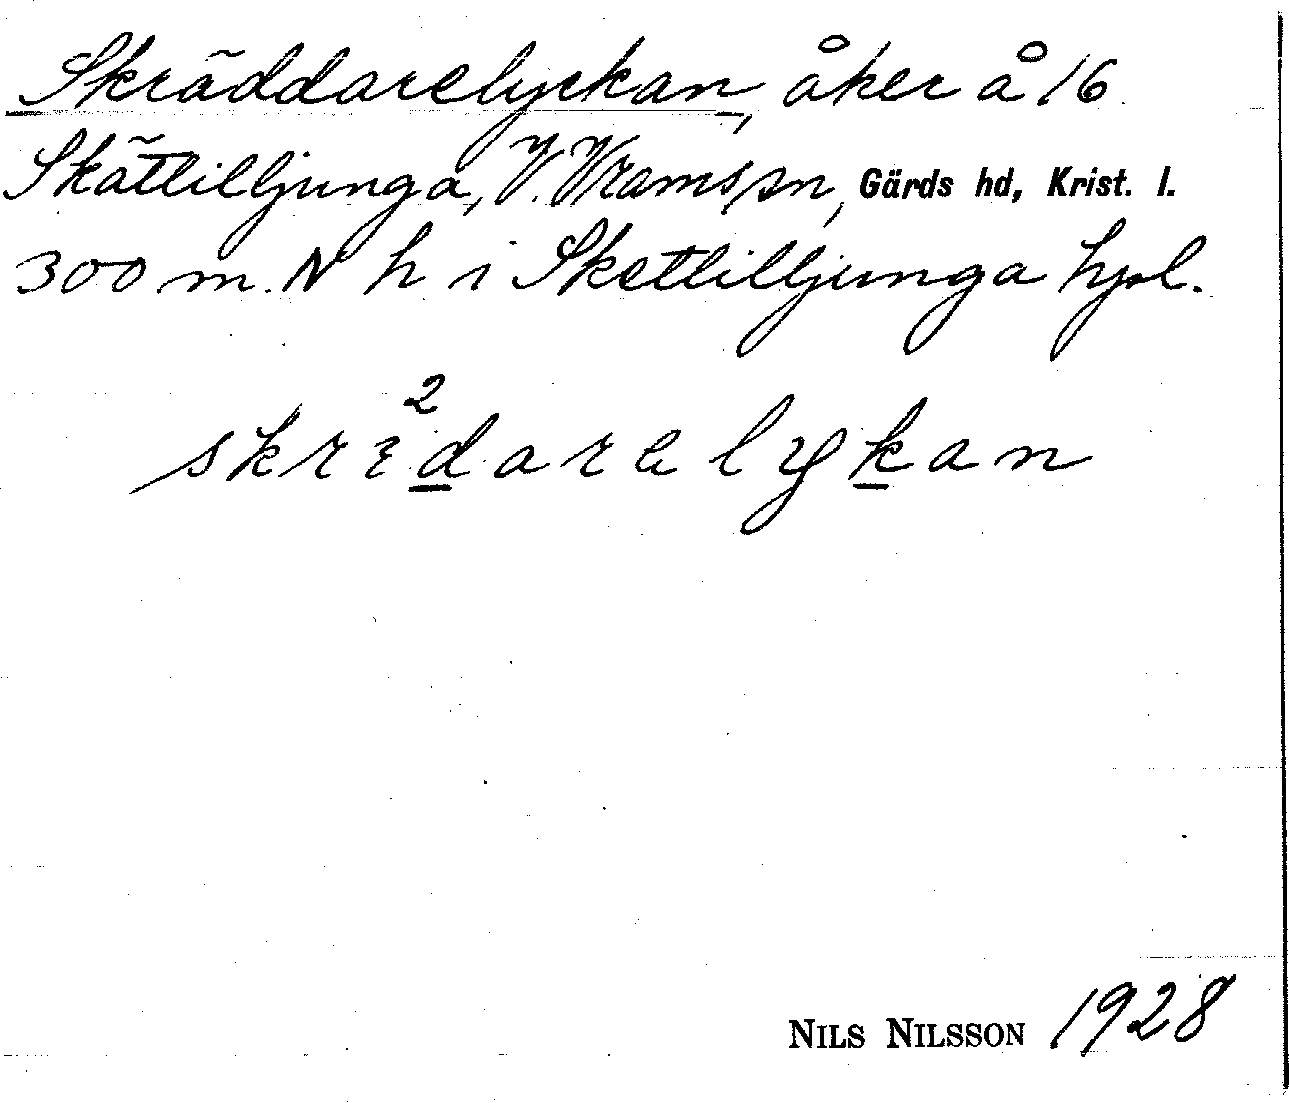 Skräddarelyckan, åker å 16
Skättilljunga, V. Vrams sn, Gärds hd, Krist. l.
300 m. N h i Skettilljunga hpl.
skrɛ²darelykan
NILS NILSSON 1928